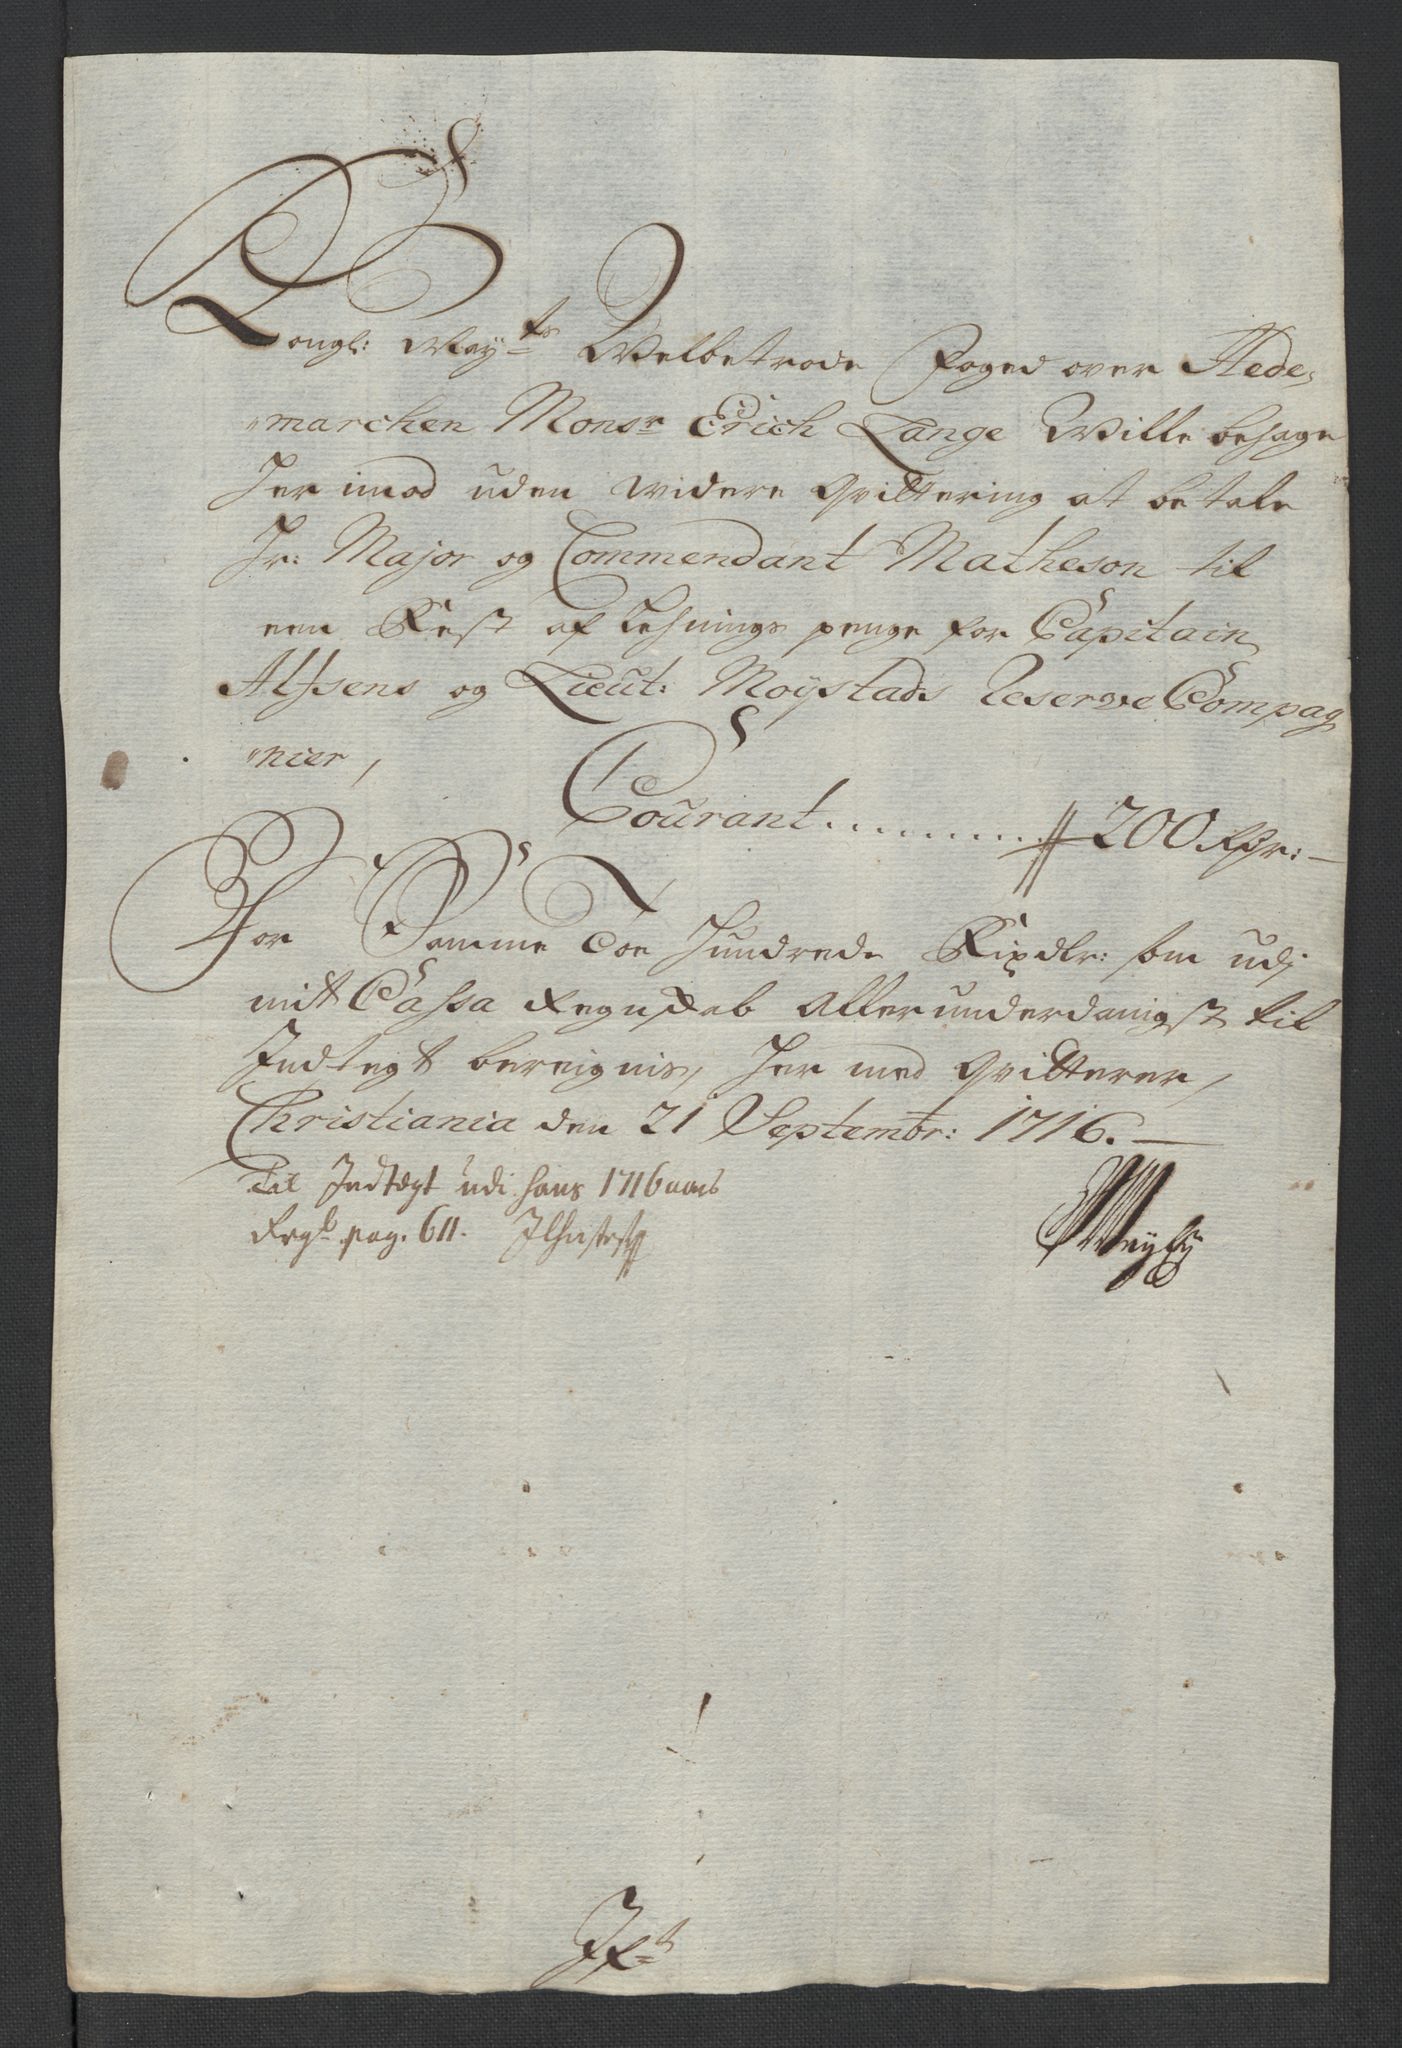 Kongl: May:ts Welbetrode Foged over Hede,
marchen Monsr Erich Lange Wille behage
her imod uden widere qvittering at betale
Hr: Major og Commendant Matheson til
een Rest af Lehnings penge for Capitain
Alssens og Lieut: Moÿstads Reserve Compag
nier,
Courant .......... 200 Rdr: —
For Samme Toe Hundrede Rixdlr: som udj
mit Cassa Regnskab Allerunderdanigst til
Indtegt bereignis, her med qvitterer,
Christiania den 21 Septembr: 1716. —
Til Indtegt udi hans 1716 aars
Regsk pag. 611.